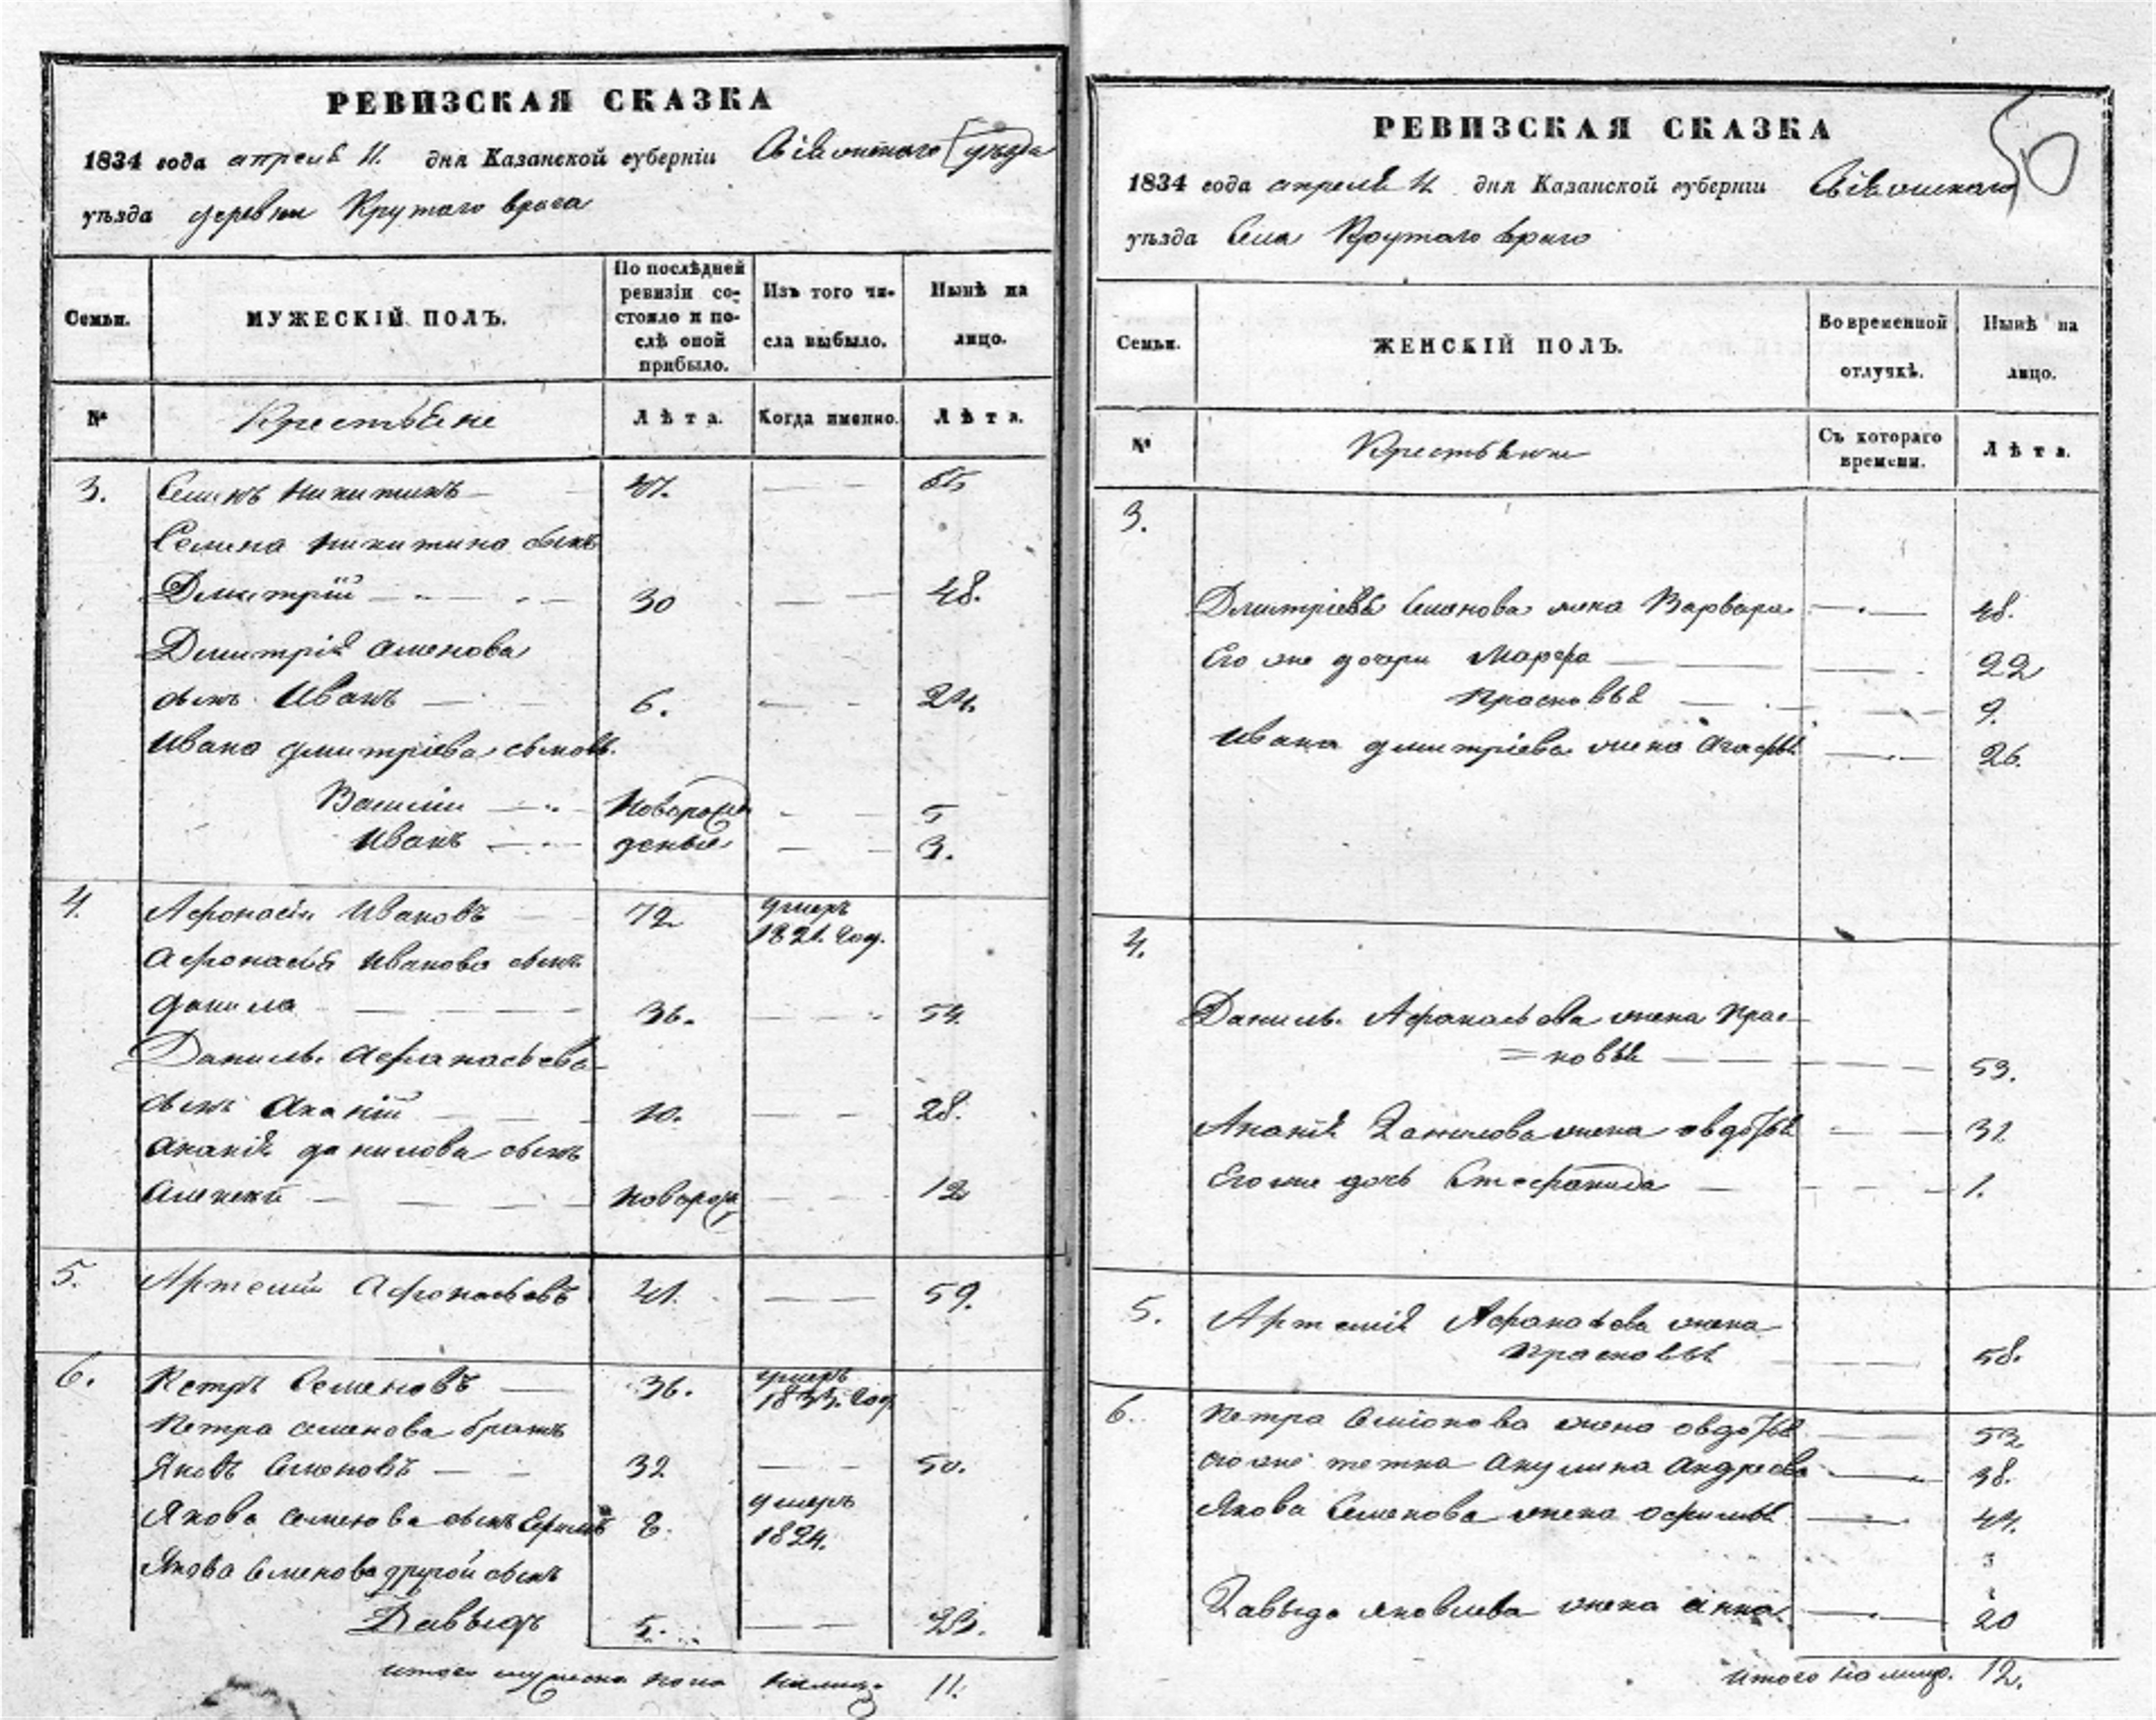 РЕВИЗСКАЯ СКАЗКА
1834 года апреля 11. дня Казанской губерніи
уѣзда деревни Крутаго врага
Семьи.
МУЖЕСКІЙ ПОЛЪ.
По послѣдней ревизіи состояло и послѣ оной прибыло.
Изъ того числа выбыло.
Нынѣ на лицо.
№
Крестьяне
Лѣта.
Когда именно.
Лѣта.
3. Семенъ Никитинъ 47. 65
Семена Никитина сынъ
Дмитрій 30 48.
Дмитрія Семенова
сынъ Иванъ 6. 24.
Ивана Дмитріева сыновь.
Василій Новорож 5
Иванъ денные 3.
4. Афонасій Ивановъ 72 умеръ 1821. год.
Афонасія Иванова сынъ
Данила 36. 54
Данилы Афанасьева
сынъ Ананій 10. 28.
Ананія Данилова сынъ
Алексей Новорож 12
5. Артемій Афонасьевъ 41. 59.
6. Петръ Семеновъ 36. умеръ 1833. год
Петра Семенова братъ
Яковъ Семеновъ 32 50.
Якова Семенова сынъ Ефимъ 8. умеръ 1824.
Якова Семенова другой сынъ
Давыдъ 5. 23.
итого мужеска пола налицо 11.
50
РЕВИЗСКАЯ СКАЗКА
1834 года апреля 11 дня Казанской губерніи
уѣзда Села Крутаго врага
Семьи.
ЖЕНСКІЙ ПОЛЪ.
Во временной отлучкѣ.
Нынѣ на лицо.
№
Крестьянки
Съ котораго времени.
Лѣта.
3.
Дмитрія Семенова жена Варвара 48.
Его же дочери Марфа 22
Прасковья 9.
Ивана Дмитріева жена Агафья 26.
4.
Данилы Афанасьева жена Прас=
=ковья 53.
Ананія Данилова жена Овдотья 31
Его же дочь Стефанида 1.
5. Артемія Афанасьева жена
Прасковья 58.
6. Петра Семіонова жена Овдотья 53
его же тетка Акулина Андреева 38.
Якова Семенова жена Офимья 44.
Давыда Яковлева жена Анна 20
Итого на лицо. 12.